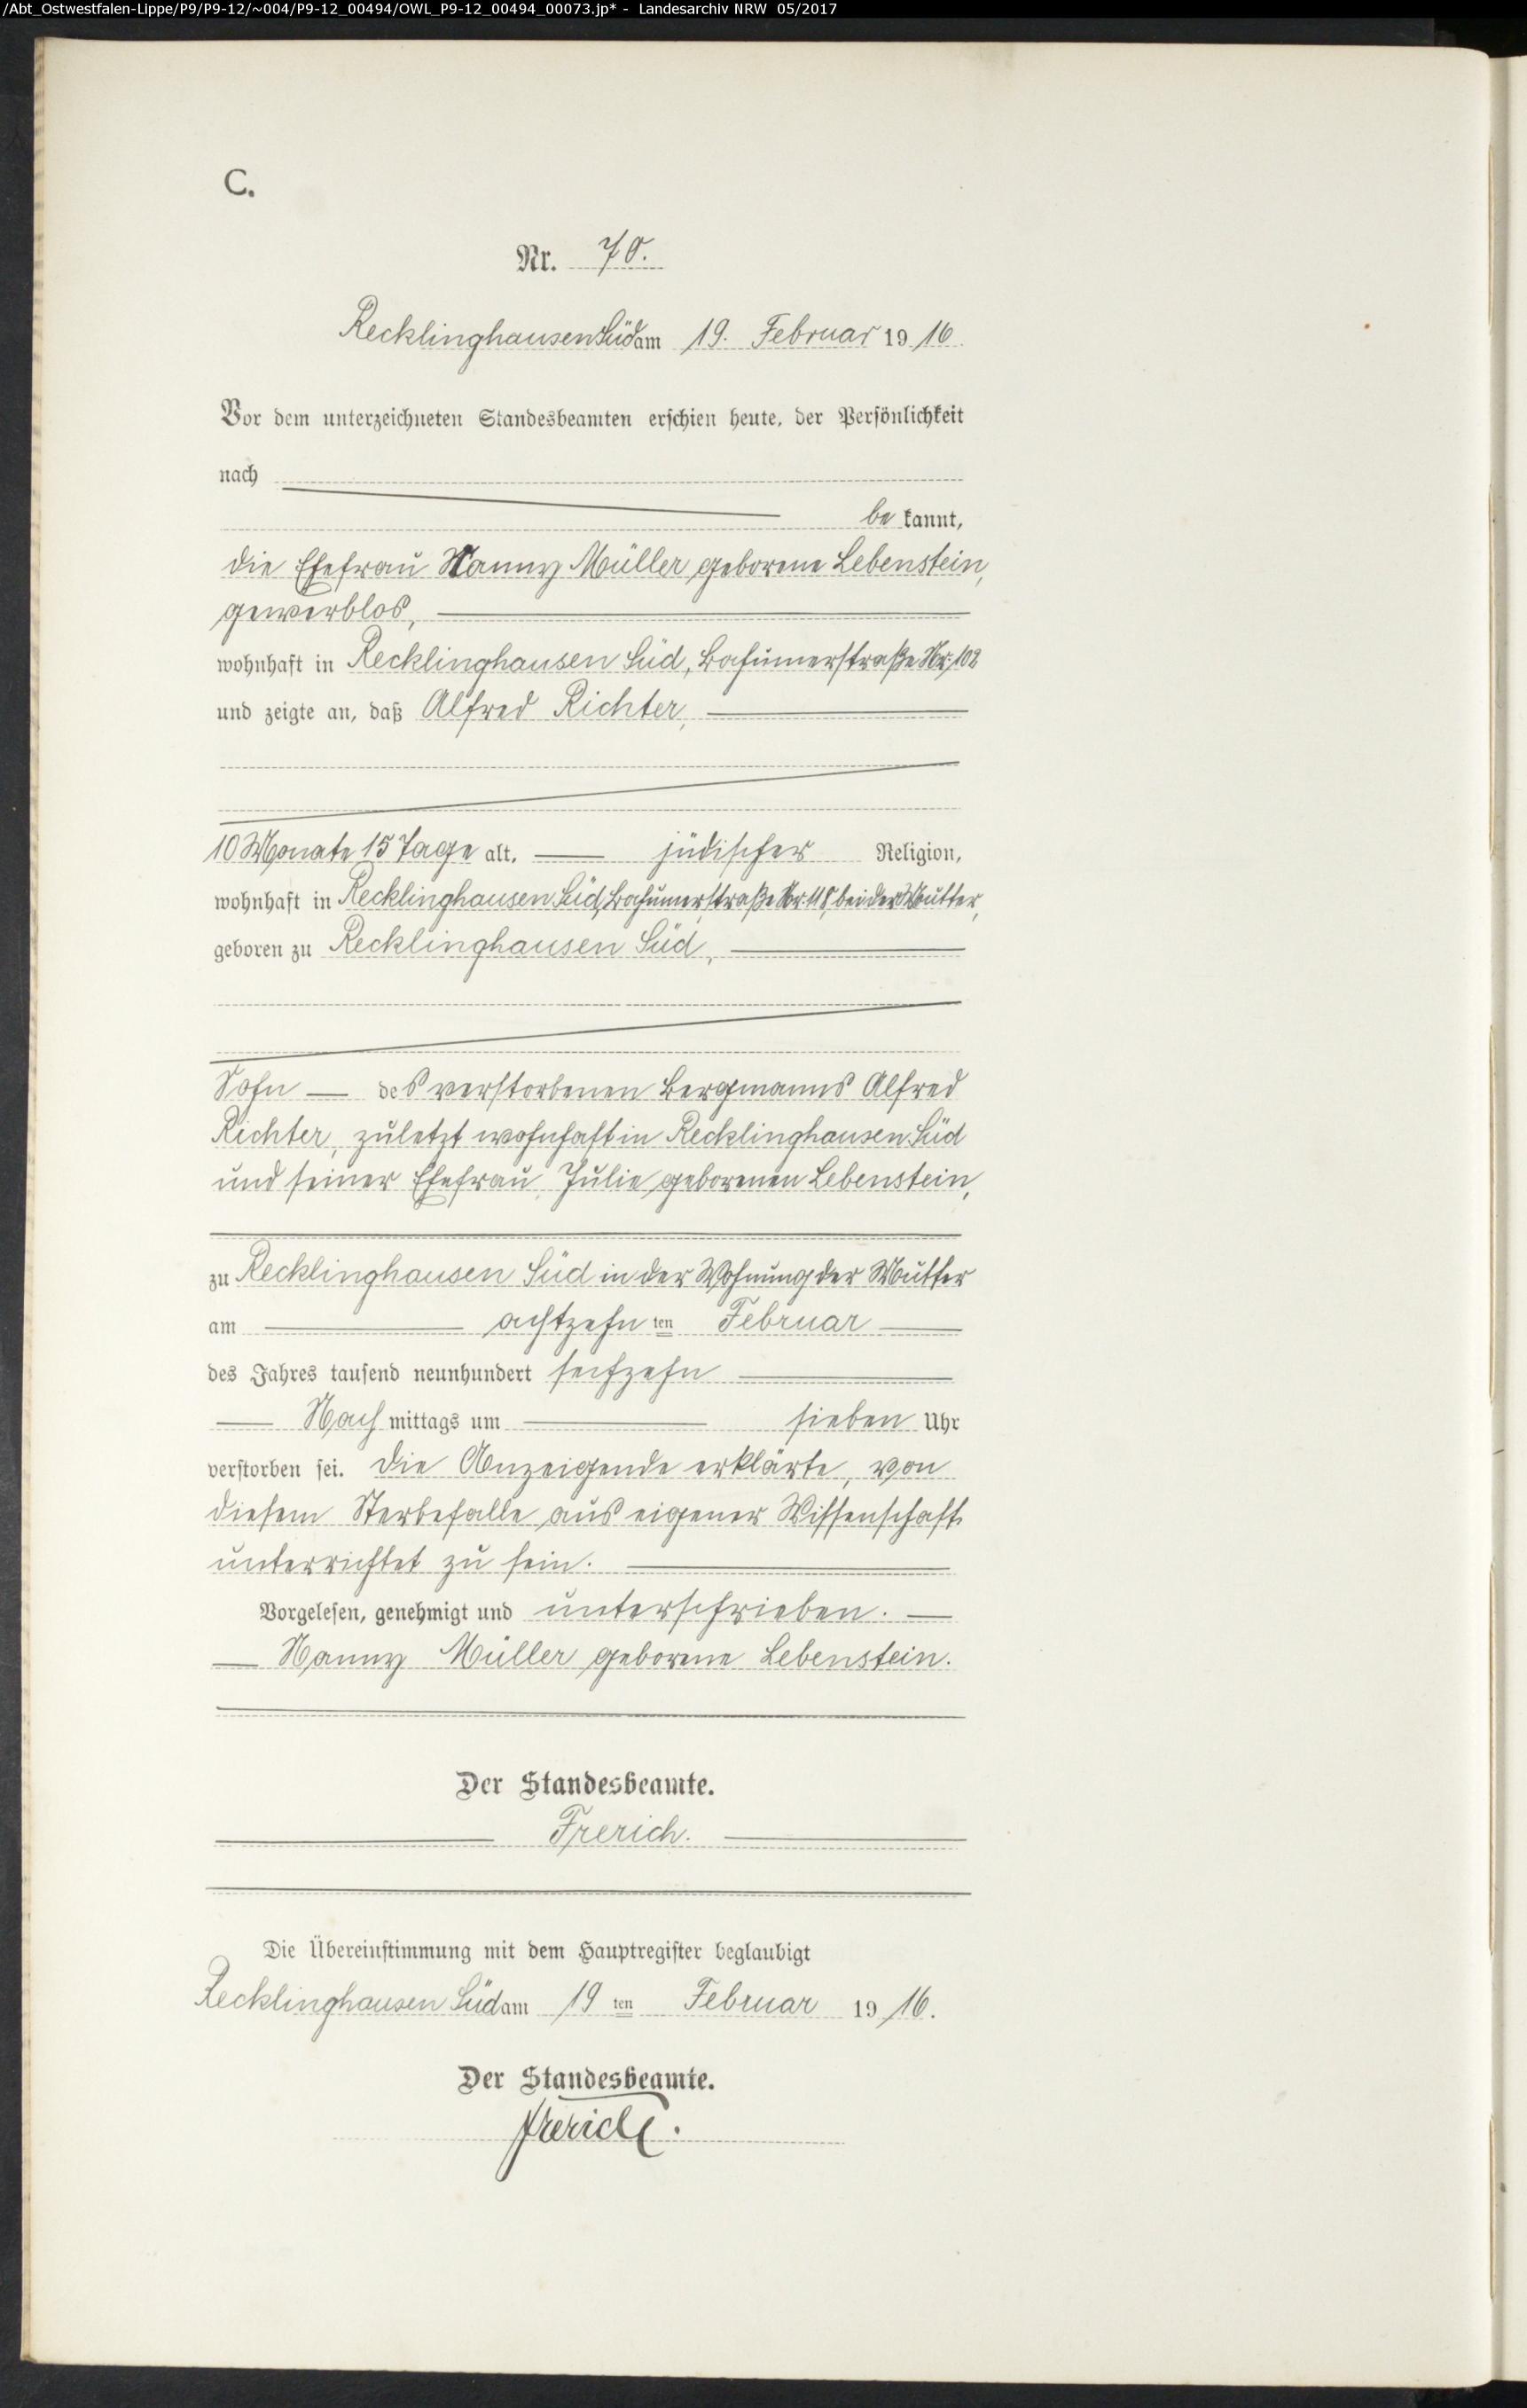 /Abt_Ostwestfalen-Lippe/P9/P9-12/~004/P9-12_00494/OWL_P9-12_00494_00073.jp* - Landesarchiv NRW 05/2017
C.
Nr. 70.
Recklinghausen Süd am 19. Februar 1916.
Vor dem unterzeichneten Standesbeamten erschien heute, der Persönlichkeit
nach
bekannt,
die Ehefrau Nanny Müller geborene Lebenstein,
gewerblos,
wohnhaft in Recklinghausen Süd, Bochumerstraße Nr. 102
und zeigte an, daß Alfred Richter,
10 Monate 15 Tage alt, jüdischer Religion,
wohnhaft in Recklinghausen Süd, Bochumerstraße Nr. 118, bei der Mutter,
geboren zu Recklinghausen Süd,
Sohn des verstorbenen Bergmanns Alfred
Richter, zuletzt wohnhaft in Recklinghausen Süd
und seiner Ehefrau Julie geborenen Lebenstein,
zu Recklinghausen Süd in der Wohnung der Mutter
am achtzehnten Februar
des Jahres tausend neunhundert sechzehn
Nachmittags um sieben Uhr
verstorben sei. Die Anzeigende erklärte, von
diesem Sterbefalle aus eigener Wissenschaft
unterrichtet zu sein.
Vorgelesen, genehmigt und unterschrieben.
Nanny Müller geborene Lebenstein.
Der Standesbeamte.
Frerich.
Die Übereinstimmung mit dem Hauptregister beglaubigt
Recklinghausen Süd am 19ten Februar 1916.
Der Standesbeamte.
Frerich.